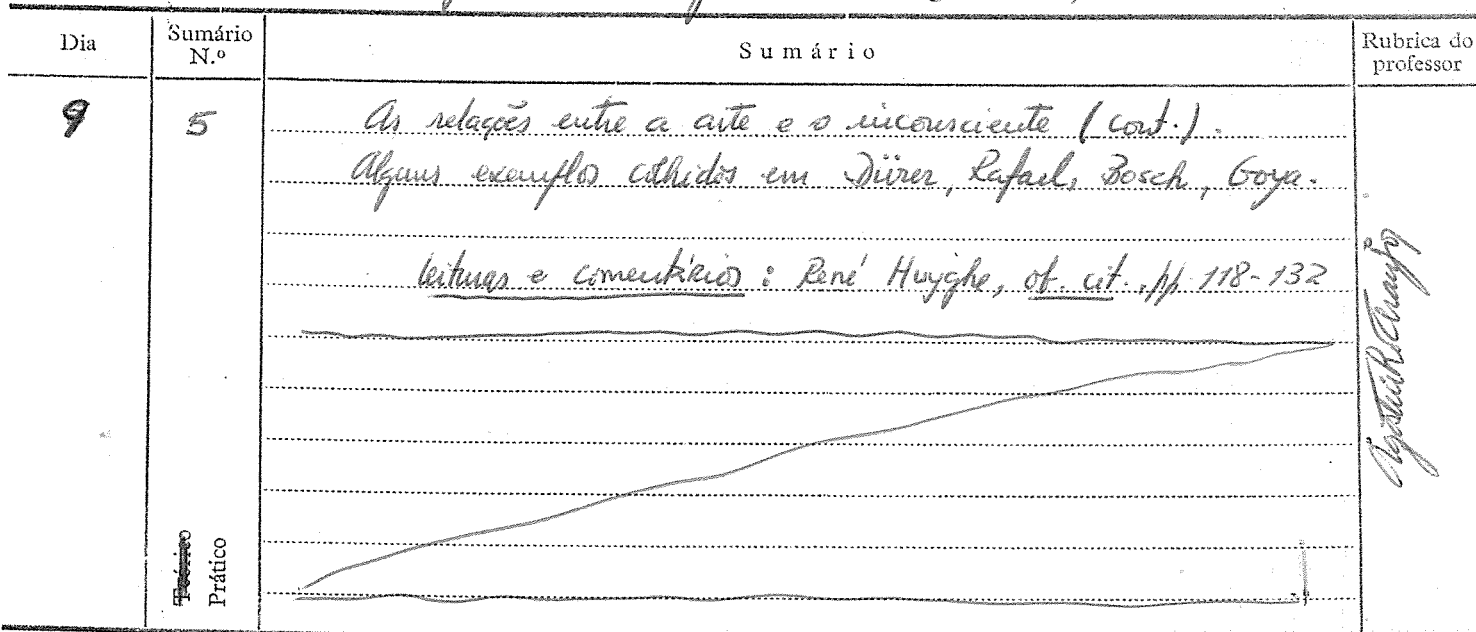 Dia
Sumário
N.º
Sumário
Rubrica do
professor
9
5
As relações entre a arte e o inconsciente (cont.).
Alguns exemplos colhidos em Dürer, Rafael, Bosch, Goya.
leituras e comentários : René Huyghe, op. cit., pp. 118-132
Teórico
Prático